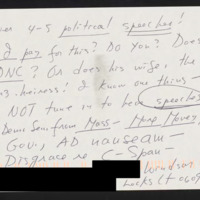 4-5 political speeches!
I pay for this? Do you? Does
DNC? Or does his wife, the
heiress? I know one thing —
NOT tune in to her speeches
Dem. Sen. from Mass — More Money,
Gov., AD nauseam —
Disgrace re C-Span —
Windsor
Locks CT 0609